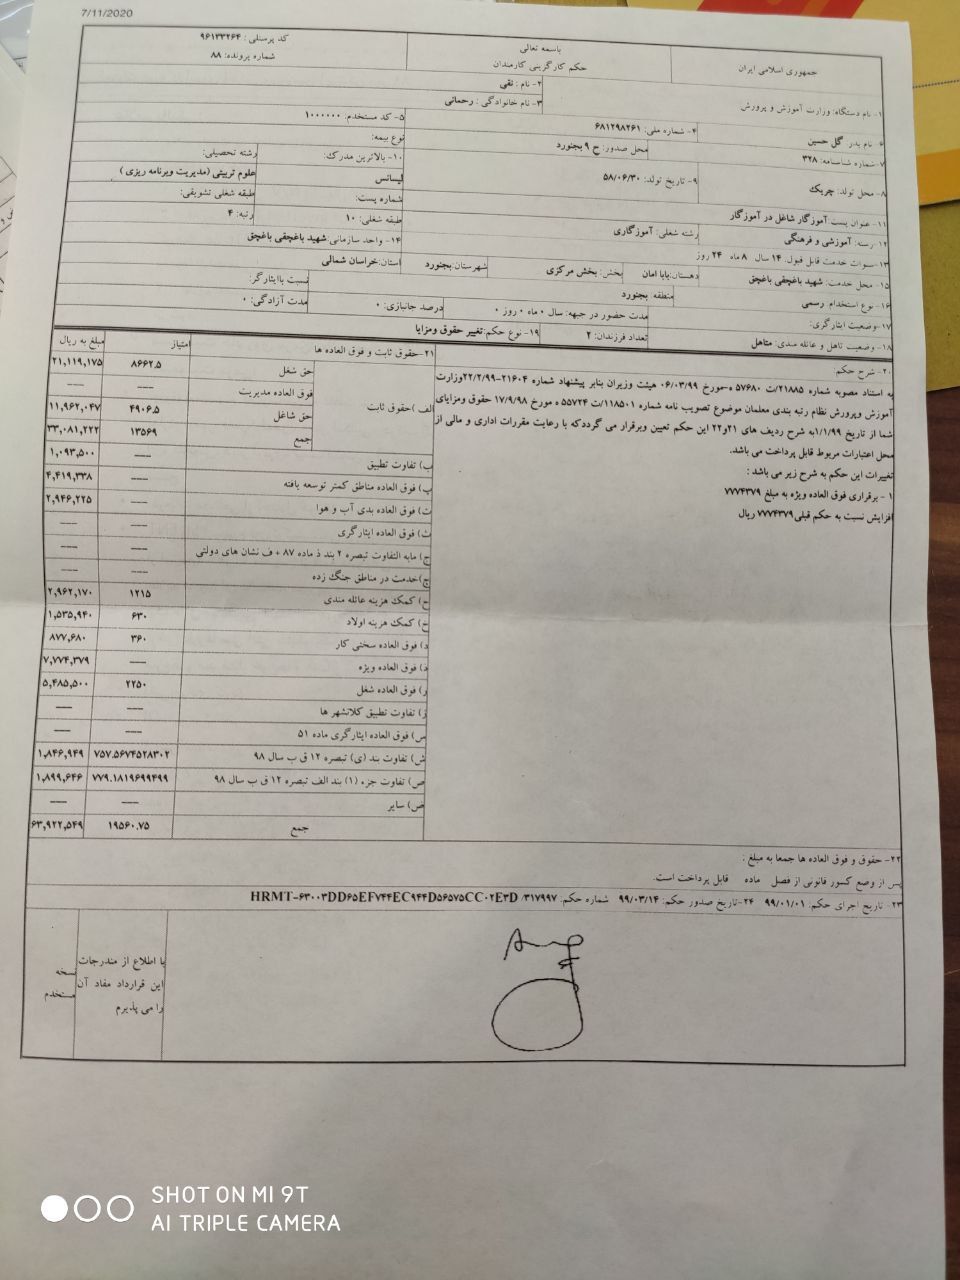 7/11/2020
باسمه تعالی
حکم کارگزینی کارمندان
جمهوری اسلامی ایران
کد پرسنلی : ۹۶۱۳۳۲۶۴
شماره پرونده: ۸۸
۱- نام دستگاه: وزارت آموزش و پرورش
۲- نام : نقی
۳- نام خانوادگی : رحمانی
۴- شماره ملی: ۶۸۱۲۹۸۲۶۱
۵- کد مستخدم: ۱۰۰۰۰۰۰
۶- نام پدر: گل حسین
۷-شماره شناسنامه: ۳۲۸
محل صدور: ح ۹ بجنورد
نوع بیمه:
۸- محل تولد: چریک
۹- تاریخ تولد: ۵۸/۰۶/۳۰
۱۰- بالاترین مدرک:
لیسانس
رشته تحصیلی:
علوم تربیتی (مدیریت وبرنامه ریزی )
۱۱- عنوان پست: آموزگار شاغل در آموزگار
شماره پست:
طبقه شغلی تشویقی:
۱۲- رسته: آموزشی و فرهنگی
رشته شغلی: آموزگاری
طبقه شغلی: ۱۰
رتبه: ۴
۱۳-سنوات خدمت قابل قبول: ۱۴ سال ۸ ماه ۲۴ روز
۱۴- واحد سازمانی: شهید باغچقی باغچق
۱۵- محل خدمت: شهید باغچقی باغچق
دهستان: بابا امان
بخش: بخش مرکزی
شهرستان: بجنورد
استان: خراسان شمالی
۱۶- نوع استخدام: رسمی
منطقه: بجنورد
۱۷-وضعیت ایثارگری:
مدت حضور در جبهه: سال ۰ ماه ۰ روز ۰
درصد جانبازی: ۰
نسبت باایثارگر:
مدت آزادگی: ۰
۱۸- وضعیت تاهل و عائله مندی: متاهل
تعداد فرزندان: ۲
۱۹- نوع حکم: تغییر حقوق ومزایا
۲۰- شرح حکم:
به استناد مصوبه شماره ۲۱۸۸۵/ت ۵۷۶۸۰ ه-مورخ ۰۶/۰۳/۹۹ هیئت وزیران بنابر پیشنهاد شماره ۲۱۶۰۴-۲۲/۲/۹۹وزارت
آموزش وپرورش نظام رتبه بندی معلمان موضوع تصویب نامه شماره ۱۱۸۵۰۱/ت ۵۵۷۲۴ ه مورخ ۱۷/۹/۹۸ حقوق ومزایای
شما از تاریخ ۱/۱/۹۹به شرح ردیف های ۲۱و۲۲ این حکم تعیین وبرقرار می گرددکه با رعایت مقررات اداری و مالی از
محل اعتبارات مربوط قابل پرداخت می باشد.
تغییرات این حکم به شرح زیر می باشد :
۱ - برقراری فوق العاده ویژه به مبلغ ۷۷۷۴۳۷۹
افزایش نسبت به حکم قبلی۷۷۷۴۳۷۹ ریال
۲۱-حقوق ثابت و فوق العاده ها امتیاز مبلغ به ریال
الف )حقوق ثابت
حق شغل ۸۶۶۲.۵ ۲۱,۱۱۹,۱۷۵
فوق العاده مدیریت ---- ----
حق شاغل ۴۹۰۶.۵ ۱۱,۹۶۲,۰۴۷
جمع ۱۳۵۶۹ ۳۳,۰۸۱,۲۲۲
ب) تفاوت تطبیق ---- ۱,۰۹۳,۵۰۰
پ) فوق العاده مناطق کمتر توسعه یافته ---- ۴,۴۱۹,۳۳۸
ت) فوق العاده بدی آب و هوا ---- ۲,۹۴۶,۲۲۵
ث) فوق العاده ایثارگری ---- ----
ج) مابه التفاوت تبصره ۲ بند ذ ماده ۸۷ + ف نشان های دولتی ---- ----
چ)خدمت در مناطق جنگ زده ---- ----
ح) کمک هزینه عائله مندی ۱۲۱۵ ۲,۹۶۲,۱۷۰
خ) کمک هزینه اولاد ۶۳۰ ۱,۵۳۵,۹۴۰
د) فوق العاده سختی کار ۳۶۰ ۸۷۷,۶۸۰
ذ) فوق العاده ویژه ---- ۷,۷۷۴,۳۷۹
ر) فوق العاده شغل ۲۲۵۰ ۵,۴۸۵,۵۰۰
ز) تفاوت تطبیق کلانشهر ها ---- ----
س) فوق العاده ایثارگری ماده ۵۱ ---- ----
ش) تفاوت بند (ی) تبصره ۱۲ ق ب سال ۹۸ ۷۵۷.۵۶۷۴۵۲۸۳۰۲ ۱,۸۴۶,۹۴۹
ص) تفاوت جزء (۱) بند الف تبصره ۱۲ ق ب سال ۹۸ ۷۷۹.۱۸۱۹۶۹۹۴۹۹ ۱,۸۹۹,۶۴۶
ض) سایر ---- ----
جمع ۱۹۵۶۰.۷۵ ۶۳,۹۲۲,۵۴۹
۲۲- حقوق و فوق العاده ها جمعا به مبلغ :
پس از وضع کسور قانونی از فصل ماده قابل پرداخت است.
۲۳- تاریخ اجرای حکم: ۹۹/۰۱/۰۱ ۲۴-تاریخ صدور حکم: ۹۹/۰۳/۱۴ شماره حکم: HRMT-۶۳۰۰۳DD۶۵EF۷۴۴EC۹۴۴D۵۶۵۷۵CC۰۲E۳D /۳۱۷۹۹۷
با اطلاع از مندرجات
این قرارداد مفاد آن
را می پذیرم
نسخه
مستخدم
SHOT ON MI 9T
AI TRIPLE CAMERA